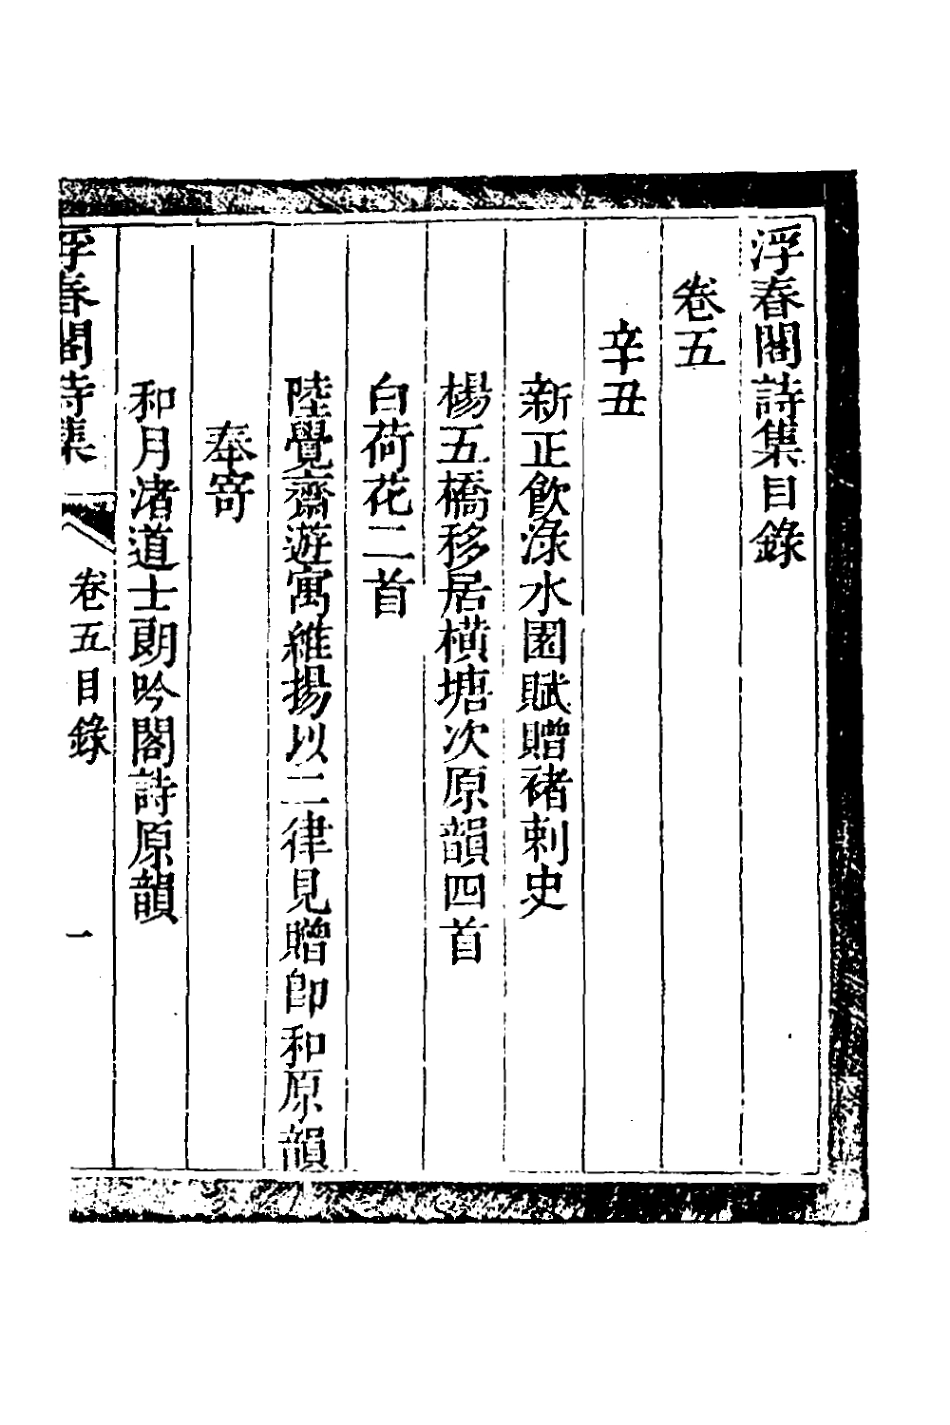 浮春閣詩集目錄
卷五
辛丑
新正飲淥水園賦贈褚刺史
楊五橋移居橫塘次原韻四首
白荷花二首
陸覺齋遊寓維揚以二律見贈卽和原韻
奉寄
和月渚道士朗吟閣詩原韻
浮春閣詩集
卷五目錄
一